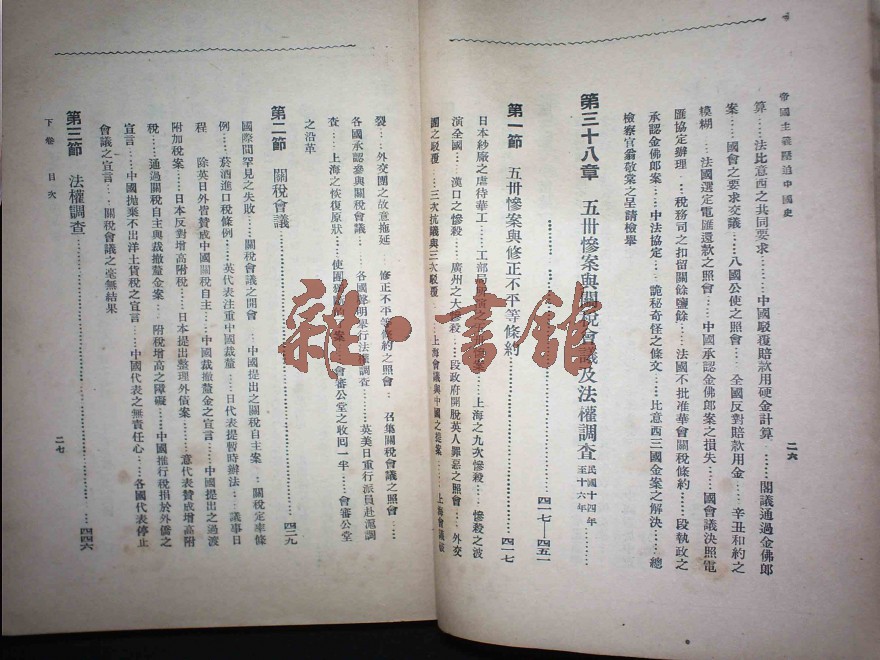 帝國主義壓迫中國史
二六
算……法比意西之共同要求……中國駁覆賠款用硬金計算……閣議通過金佛郎
案……國會之要求交議……八國公使之照會……全國反對賠款用金……辛丑和約之
模糊……法國選定電匯還款之照會……中國承認金佛郎案之損失……國會議決照電
匯協定辦理……稅務司之扣留關餘鹽餘……法國不批准華會關稅條約……段執政之
承認金佛郎案……中法協定……詭秘奇怪之條文……比意西三國金案之解決……總
檢察官翁敬棠之呈請檢舉
第三十八章 五卅慘案與關稅會議及法權調查 民國十四年至十六年……四一七—四五一
第一節 五卅慘案與修正不平等條約……四一七
日本紗廠之虐待華工……工部局……上海之九次慘殺……慘殺之波
演全國……漢口之慘殺……廣州之大慘殺……段政府開脫英人罪惡之照會……外交
團之駁覆……三次抗議與三次駁覆……上海會議與中國之提案……上海會議破
裂……外交團之故意拖延……修正不平等條約之照會……召集關稅會議之照會……
各國承認參與關稅會議……各國聲明舉行法權調查……英美日重行派員赴滬調
查……上海之恢復原狀……使團……案……會審公堂之收囘一半……會審公堂
之沿革
第二節 關稅會議……四二九
國際間罕見之失敗……關稅會議之開會……中國提出之關稅自主案……關稅定率條
例……菸酒進口稅條例……英代表注重中國裁釐……日代表提暫時辦法……議事日
程……除英日外皆贊成中國關稅自主……中國裁撤釐金之宣言……中國提出之過渡
附加稅案……日本反對增高附稅……日本提出整理外債案……意代表贊成增高附
稅……通過關稅自主與裁撤釐金案……附稅增高之障礙……中國推行稅捐於外僑之
宣言……中國拋棄不出洋土貨稅之宣言……中國代表之無責任心……各國代表停止
會議之宣言……關稅會議之毫無結果
第三節 法權調查……四四六
下卷 目次
二七
雜·書館